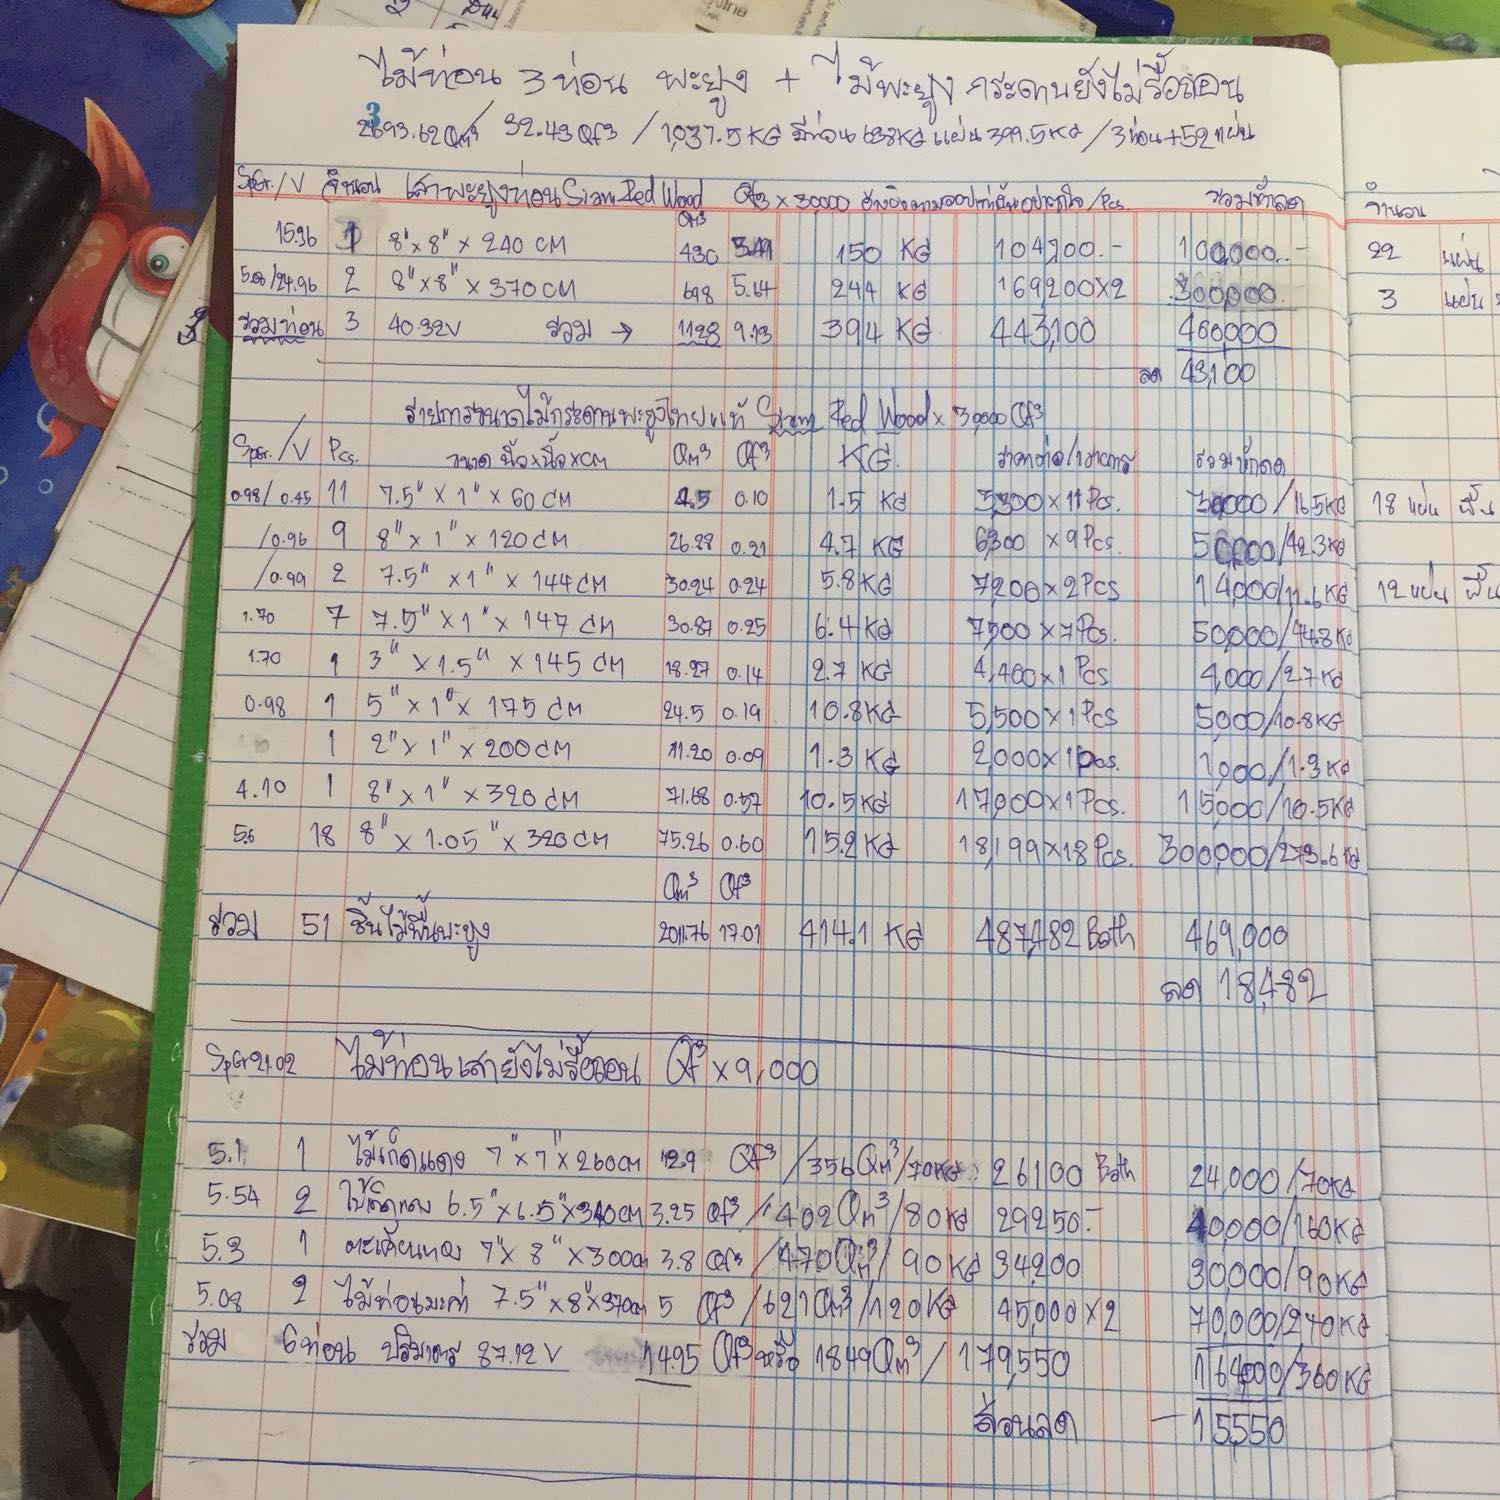 ไม้ท่อน 3 ท่อน พะยูง + ไม้พะยูง กระดานยังไม่รื้อถอน
32.43 Qf3 / 1,037.5 KG มีท่อน 638KG แผ่น 399.5KG / 3 ท่อน + 52 แผ่น
SpGr./V จำนวน เสาพะยูงท่อน Siam Red Wood Qf3 x 30,000 /Pcs. รวมหักลด
Qm3
15.36 1 8" x 8" x 240 CM 430 3.49 150 KG 104,700.- 100,000.-
2 8" x 8" x 370 CM 698 5.64 244 KG 169200x2 300,000
รวมท่อน 3 40.32V รวม → 1128 9.13 394 KG 443,100 460,000
ลด 43,100
รายการขนาดไม้กระดานพะยูงไทยแท้ Siam Red Wood x 30000 Qf3
SpGr./V Pcs. ขนาด นิ้วxนิ้วxCM Qm3 Qf3 KG. รวมหักลด
0.98/0.45 11 7.5" x 1" x 60 CM 0.10 1.5 KG 3,300 x 11 Pcs. 30,000/16.5KG
/0.96 9 8" x 1" x 120 CM 26.88 0.21 4.7 KG 6300 x 9 Pcs. 50,000/42.3KG
/0.99 2 7.5" x 1" x 144 CM 30.24 0.24 5.8 KG 7200 x 2 Pcs 14,000/11.6 KG
1.70 7 7.5" x 1" x 147 CM 30.87 0.25 6.4 KG 7500 x 7 Pcs. 50,000/44.8KG
1.70 1 3" x 1.5" x 145 CM 18.27 0.14 2.7 KG 4,400 x 1 Pcs 4,000/2.7KG
0.98 1 5" x 1" x 175 CM 24.5 0.19 10.8KG 5,500 x 1 Pcs 5000/10.8KG
1 2" x 1" x 200 CM 11.20 0.09 1.3 KG 2,000 x 1 pcs. 1,000/1.3KG
4.10 1 8" x 1" x 320 CM 71.68 0.57 10.5KG 17,000 x 1 Pcs. 15,000/10.5KG
5.6 18 8" x 1.05" x 320 CM 75.26 0.60 15.2 KG 18,199 x 18 Pcs. 300,000/273.6KG
Qm3 Qf3
รวม 51 ชิ้นไม้พื้นพะยูง 2011.76 17.01 414.1 KG 487,482 Bath 469,000
ลด 18,482
SpGr 21.02 ไม้ท่อนเสายังไม่รื้อถอน Qf3 x 9,000
5.1 1 ไม้เก็ดแดง 7" x 7" x 260CM 2.9 Qf3 / 356Qm3 / 70KG 26100 Bath 24,000/70KG
5.54 2 6.5" x 6.5" x 340CM 3.25 Qf3 / 402Qm3 / 80KG 29250.- 40,000/160KG
5.3 1 ตะเคียนทอง 7" x 8" x 300CM 3.8 Qf3 / 470Qm3 / 90KG 34,200 30,000/90KG
5.08 2 ไม้ท่อนมะค่า 7.5" x 8" x 370CM 5 Qf3 / 621Qm3 / 120KG 45,000 x 2 70,000/240KG
รวม 6 ท่อน ปริมาตร 87.12 V 14.95 Qf3 หรือ 1849Qm3 / 179,550 164,000/360KG
ส่วนลด - 15,550
จำนวน
22 แผ่น
3 แผ่น
18 แผ่น พื้น
12 แผ่น พื้น